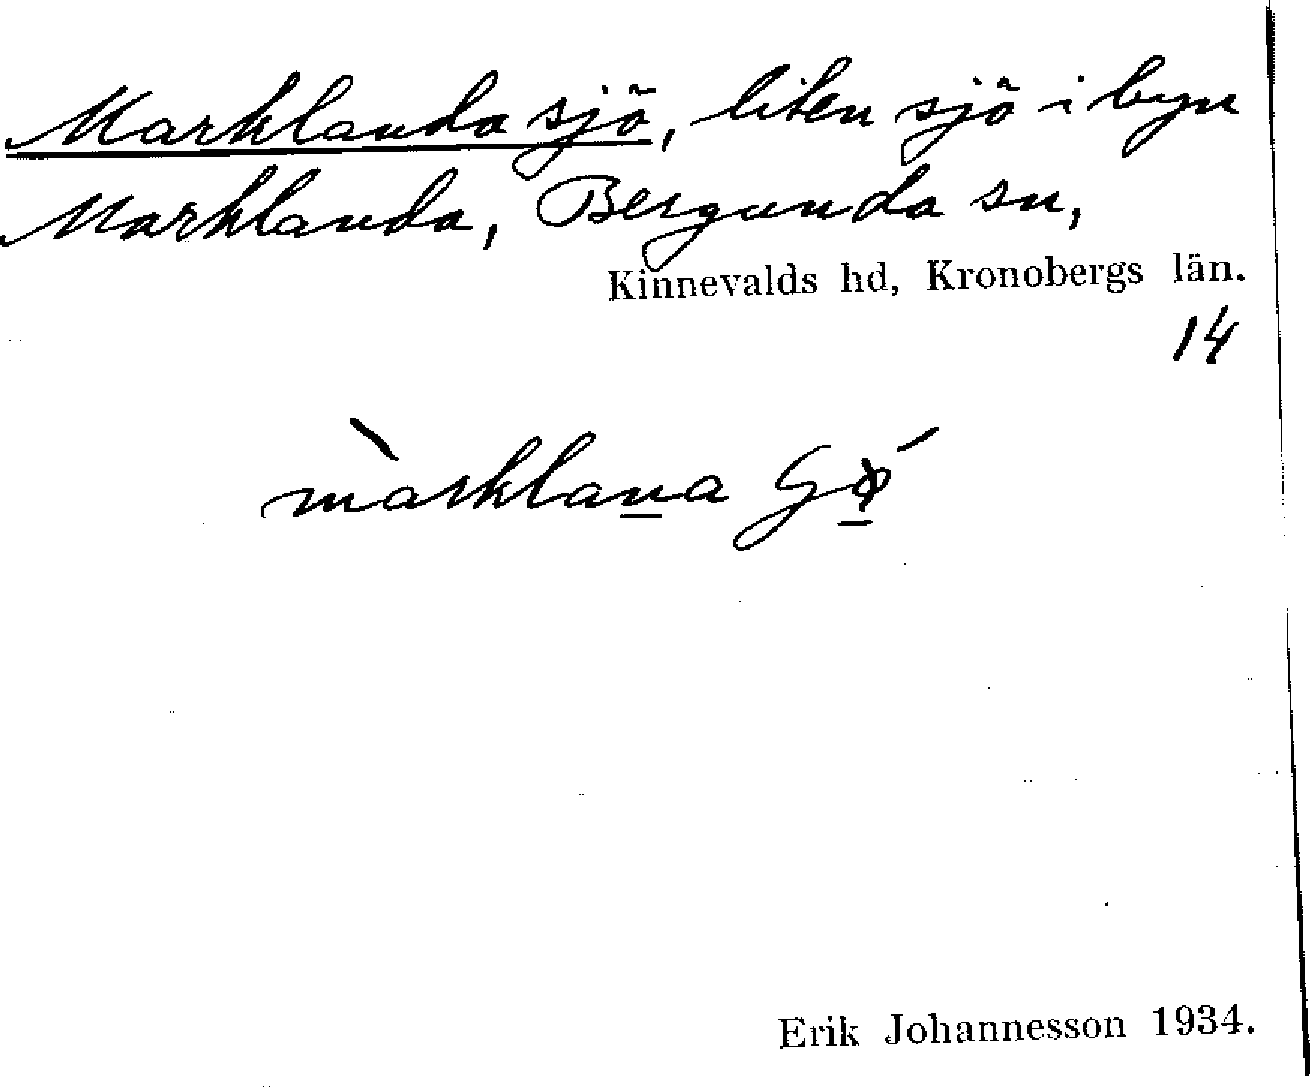 Marklanda sjö, liten sjö i byn
Marklanda, Bergunda sn,
Kinnevalds hd, Kronobergs län.
14
marklana
Erik Johannesson 1934.